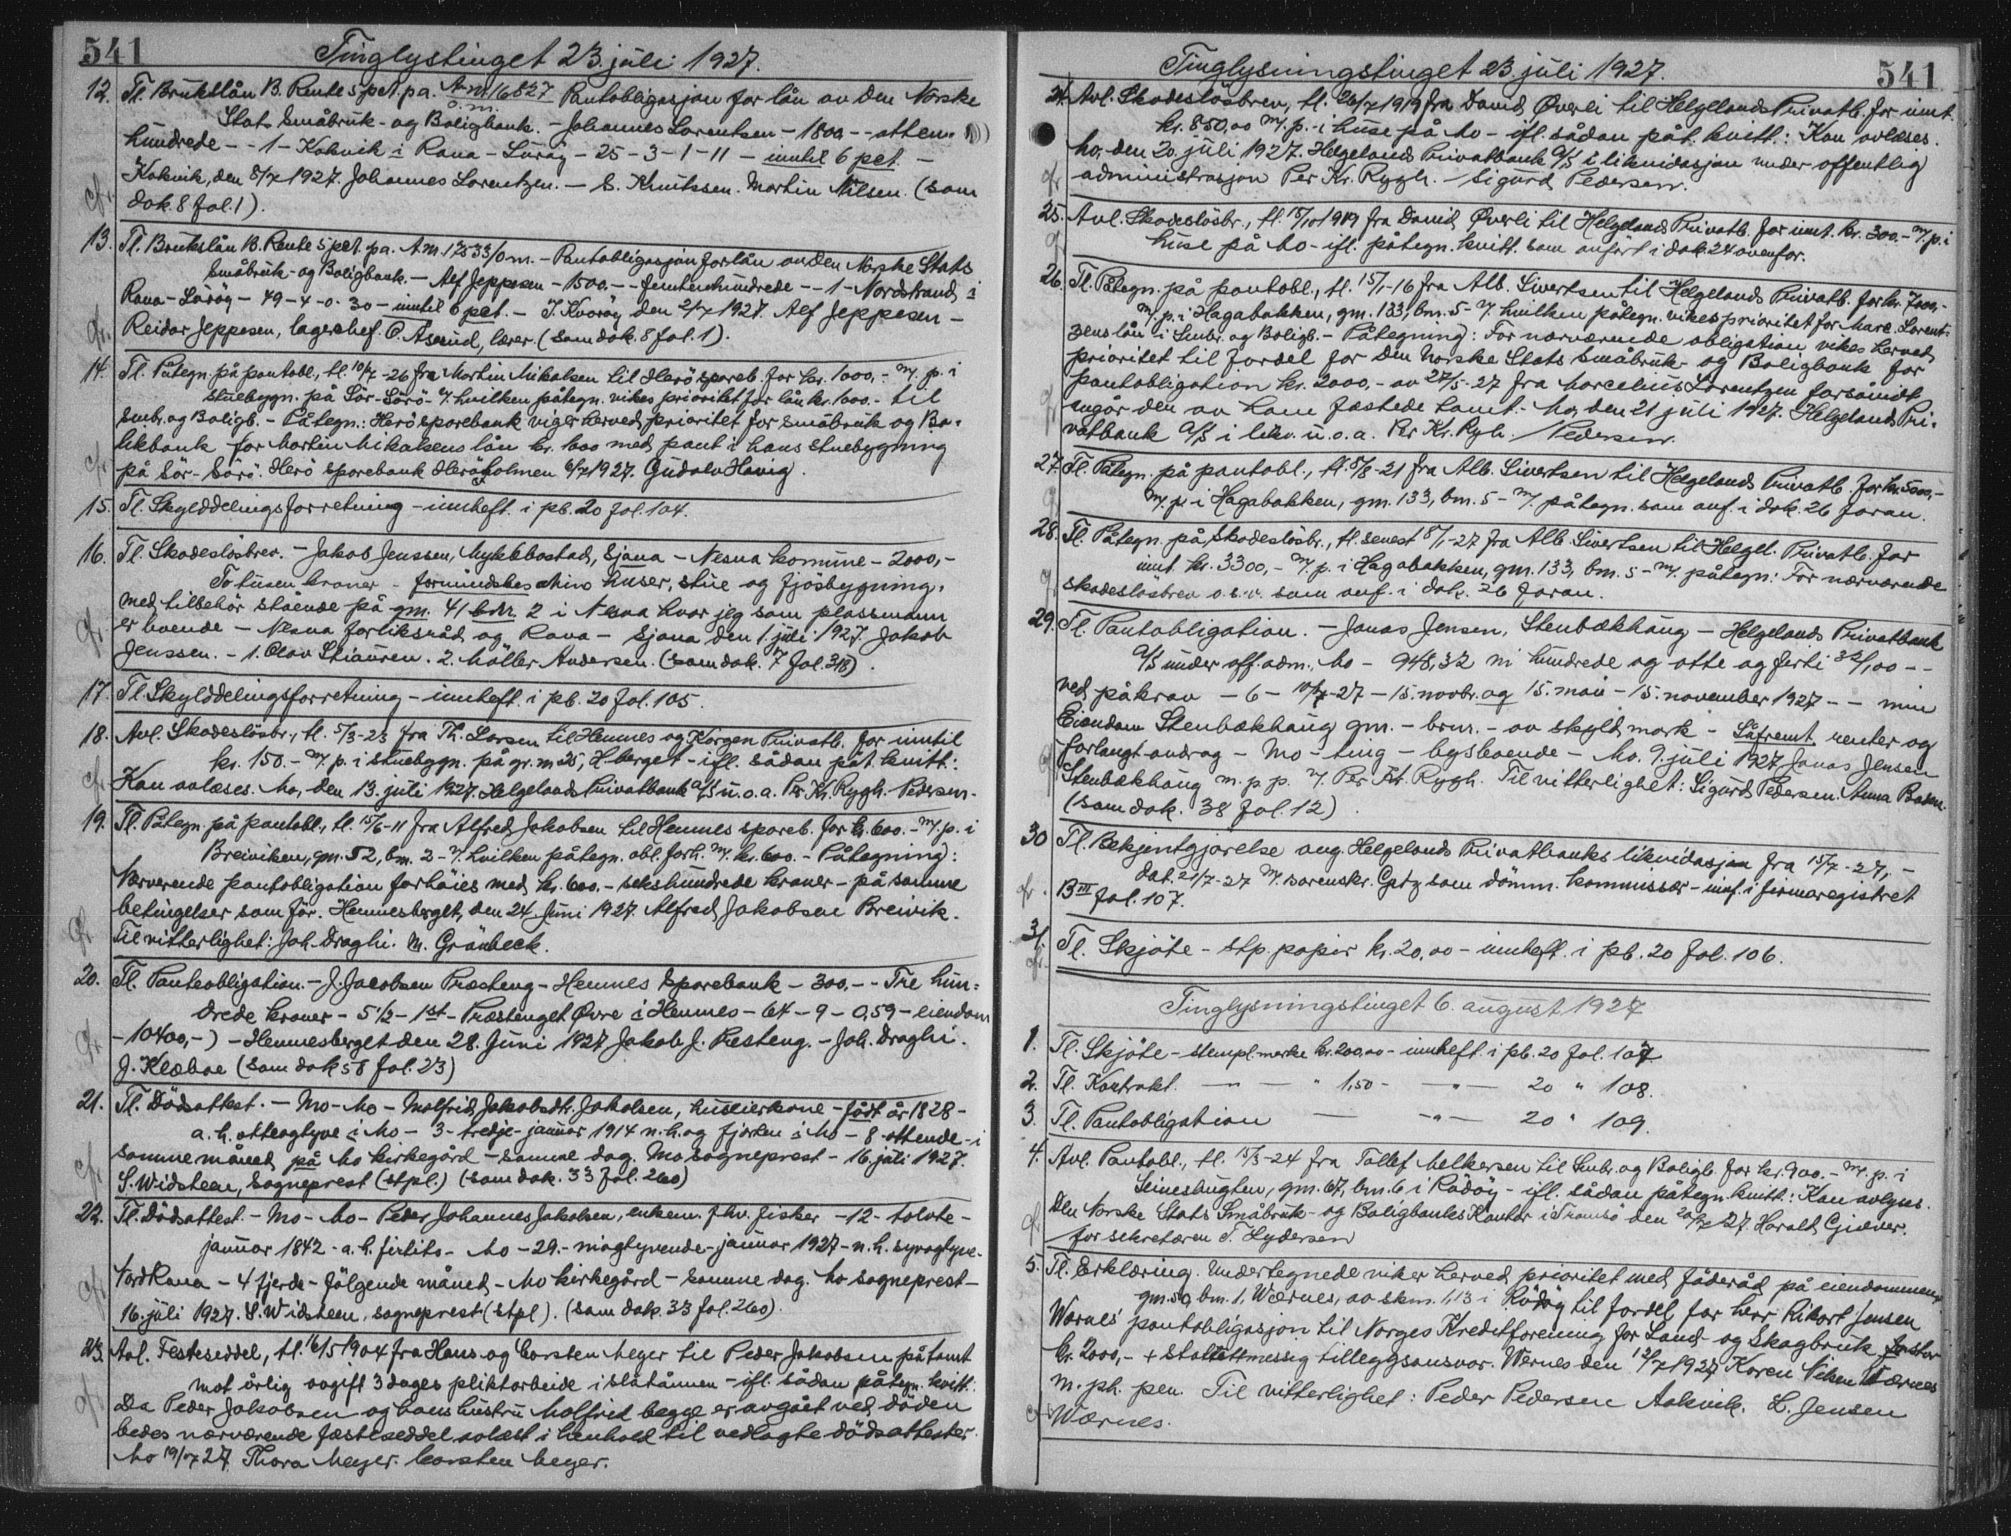 541
Tinglystinget 23. juli 1927.
12. Tl. Brukslån B. Rente 5 pct. p.a. A.m. 16827 Pantobligasjon for lån av Den Norske
o.m.
Stats Småbruk- og Boligbank. - Johannes Lorentsen - 1800 - - atten
hundrede - - 1 - Kokvik i Rana - Luröy - 25 - 3 - 1 - 11 - inntil 6 pct. -
Kokvik, den 8/7 1927. Johannes Lorentzen. - S. Knutssen. Martin Nilsen. (som
dok. 8 fol. 1).
13. Tl. Brukslån B. Rente 5 pct. p.a. A.m. 17533/o m. - Pantobligasjon for lån av Den Norske Stats
Småbruk- og Boligbank. - Alf Jeppesen - 1500. - - femtenhundrede - - 1 - Nordstrand i
Rana - Luröy - 49 - 4 - 0.30 - inntil 6 pct. - I. Kvaröy den 2/7 1927. Alf Jeppesen -
Reidar Jeppesen, lagerchef. O. Åserud, lærer. (som dok. 8 fol. 1).
14. Tl. Påtegn. på pantobl., tl. 10/7-26 fra Martin Mikalsen til Herö spareb. for kr. 1000,- m/. p. i
stuebygn. på Sör-Sörö - v/. hvilken påtegn. vikes prioritet for lån kr. 1600.- til
Smbr. og Boligb. - Påtegn.: Herö sparebank viger herved prioritet for Småbruk og Bo-
likbank for Martin Mikalsens lån kr. 1600 med pant i hans stuebygning
på Sör-Sörö. Herö sparebank Heröholmen 6/7 1927. Gudolv Havig.
15. Tl. Skylddelingsforretning - innheft. i pb. 20 fol. 104.
16. Tl. Skadeslösbrev. - Jakob Jenssen, Myklebostad, Sjona - Nesna kommune - 2000,-
To tusen kroner - formindskes mine huser, stue og fjösbygning,
med tilbehör stående på gm. 41 b.nr. 2 i Nesna hvor jeg som plassmann
er boende - Nesna forliksråd og Rana - Sjona den 1. juli 1927 Jakob
Jenssen. - 1. Olav Stiauren. 2. Möller Andersen. (som dok. 7 fol. 318).
17. Tl. Skylddelingsforretning - innheft. i pb. 20 fol. 105.
18. Avl. Skadeslösbr., tl. 5/3-23 fra Th. Larsen til Hemnes og Korgen Privatb. for inntil
kr. 150.- m/. p. i stuebygn. på gr. m 25, H.berget - ifl. sådan påt. kvitt.:
Kan avlæses. Mo, den 13. juli 1927. Helgelands Privatbank a/s u.o.a. Per Kr. Rygh. Pedersen.
19. Tl. Påtegn. på pantobl., tl. 15/6-11 fra Alfred Jakobsen til Hemnes spareb. for kr. 600.- m/. p. i
Breiviken, gm. 52, bm. 2 - v/. hvilken påtegn. obl. forh. m/. kr. 600.- Påtegning:
Nærverende pantobligation forhöies med kr. 600.- sekshundrede kroner - på samme
betingelser som för. Hemnesberget, den 24 Juni 1927. Alfred Jakobsen Breivik.
Til vitterlighet: Joh. Draghi. M. Grönbeck.
20. Tl. Panteobligation. - J. Jacobsen Præsteng - Hemnes Sparebank - 300.- - Tre hun-
drede kroner - 5 1/2 - 1st - Præstenget Övre i Hemnes - 64 - 9 - 0,59 - eiendom
- 10400,-) - Hemnesberget den 28. Juni 1927 Jakob J. Presteng. - Joh. Draghi.
J. Klæboe (som dok 58 fol. 23)
21. Tl. Dödsattest. - Mo - Mo - Molfrid Jakobsdtr. Jakobsen, huseierkone - födt år 1828 -
a. h. otteogtyve i Mo - 3 - tredje - januar 1914 n. h. og fjorten i Mo - 8 - ottende - i
samme måned på Mo kirkegård - samme dag. Mo sogneprest - 16. juli 1927.
S. Widsteen, sogneprest (stpl.) (som dok. 33 fol. 260)
22. Tl. Dödsattest. - Mo - Mo - Peder Johannes Jakobsen, enkem. fhv. fisker - 12 - tolvte -
januar 1842 - a. h. firtito - Mo - 29. - niogtyvende - januar 1927 - n. h. syvogtyve -
NordRana - 4 fjerde - fölgende måned - Mo kirkegård - samme dag. Mo sogneprest -
16. juli 1927. S. Widsteen, sogneprest (stpl). (som dok. 33 fol. 260).
23. Avl. Festeseddel, tl. 16/5 1904 fra Hans og Carsten Meyer til Peder Jakobsen på tomt
mot årlig avgift 3 dages pliktarbeide i slåtånnen - ifl. sådan påtegn. kvitt.
Da Peder Jakobsen og hans hustru Molfrid begge er avgået ved döden
bedes nærværende fæsteseddel avlæst i henhold til vedlagte dödsattester.
Mo 19/7 27. Thora Meyer. Carsten Meyer.
Tinglysningstinget 23. juli 1927.
541
24. Avl. Skadeslösbrev, tl. 26/7 1919 fra David Överli til Helgelands Privatb. for innt.
kr. 850,00 m/. p. i huse på Mo - ifl. sådan påt. kvitt.: Kan avlæses.
Mo, den 20. juli 1927. Helgelands Privatbank a/s i likvidasjon under offentlig
administrasjon Per Kr. Rygh. - Sigurd Pedersen.
25. Avl. Skadeslösbr., tl. 18/10 1919 fra David Överli til Helgeland Privatb. for innt. kr. 300.- m/. p. i
huse på Mo - ifl. påtegn. kvitt. som anfört i dok. 24 ovenfor.
26. Tl. Påtegn. på pantobl., tl. 15/1-16 fra Alb. Sivertsen til Helgelands Privatb. for kr. 7000,-
m/. p. i Hagabakken, gm. 133, bm. 5 - v/. hvilken påtegn. vikes prioritet for Marc. Lorent-
zens lån i Smbr. og Boligb. - Påtegning: For nærværende obligation vikes herved
prioritet til fordel for Den Norske Stats Småbruk- og Boligbank for
pantobligation kr. 2000,- av 27/5-27 fra Marcelius Lorentzen forsåvidt
angår den av ham fæstede tomt. - Mo, den 21 juli 1927. Helgelands Pri-
vatbank a/s i likv. u. o. a. Per Kr. Rygh. / Pedersen.
27. Tl. Påtegn. på pantobl., tl. 5/8-21 fra Alb. Sivertsen til Helgelands Privatb. for kr. 5000,-
m/. p. i Hagabakken, gm. 133, bm. 5 - m/. påtegn. som anf. i dok. 26 foran.
28. Tl. Påtegn. på Skadeslösbr., tl. senest 8/1-27 fra Alb. Sivertsen til Helgel. Privatb. for
innt. kr. 3300,- m/. p. i Hagabakken, gm. 133, bm. 5 - m/. påtegn: For nærværende
skadeslösbrev o.s.v. som anf. i dok. 26 foran.
29. Tl. Pantobligation. - Jonas Jensen, Stenbækhaug - Helgelands Privatbank
a/s under off. adm., Mo - 948,32 ni hundrede og otte og förti 32/1,00 - -
ved påkrav - 6 - 10/7-27 - 15. novbr. og 15. mai - 15. november 1927 - - min
Eiendom Stenbækhaug gm. - brnr. - av skyld mark - Såfremt renter og
forlangt avdrag - Mo - ting - bysboende - Mo. 9. juli 1927 Jonas Jensen
Stenbækhaug m. p. p. v/. Per Kr. Rygh. Til vitterlighet: Sigurd Pedersen. Anna
(som dok. 38 fol. 12)
30 Tl. Bekjentgjörelse ang. Helgelands Privatbanks likvidasjon fra 15/7-27, -
dat. 21/7-27 m/. sorenskr. Getz som dömm. kommissær - innf. i firmaregistret
B III fol. 107.
31. Tl. Skjöte - stp. papir kr. 20,00 - innheft. i pb. 20 fol. 106.
Tinglysningstinget 6. august 1927
1. Tl. Skjöte - stempl. merke kr. 200,00 - innheft. i pb. 20 fol. 107
2. Tl. Kontrakt. - " - " 1,50 - - " - 20 " 108.
3. Tl. Pantobligation - - " - 20 " 109.
4. Avl. Pantobl., tl. 15/3-24 fra Tollef Melkersen til Smbr. og Boligb. for kr. 900.- m/. p. i
Seinesbugten, gm. 67, bm. 6 i Rödöy - ifl. sådan påtegn. kvitt.: Kan avlyses.
Den Norske Stats Småbruk- og Boligbanks Kontor i Tromsö den 20/7 27. Harald Gjæver.
/ for sekretæren T. Hydersen
5. Tl. Erklæring. Undertegnede viker herved prioritet med föderåd på eiendommen
gm. 50, bm. 1, Wærnes, av skm. 1,13 i Rödöy til fordel for herr Rikart Jensen
Wærnes' pantobligasjon til Norges Kreditforening for Land- og Skogbruk
kr. 2000,- + statuttmessig tilleggsansvar. Wernes den 12/7 1927 Karen Wærnes
m. ph. pen. Til vitterlighet: Peder Pedersen Aakvik. L. Jensen
Wærnes.